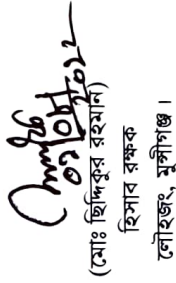 ০১/০৮/২০২২
(মোঃ ছিদ্দিকুর রহমান)
হিসাব রক্ষক
লৌহজং, মুন্সীগঞ্জ।